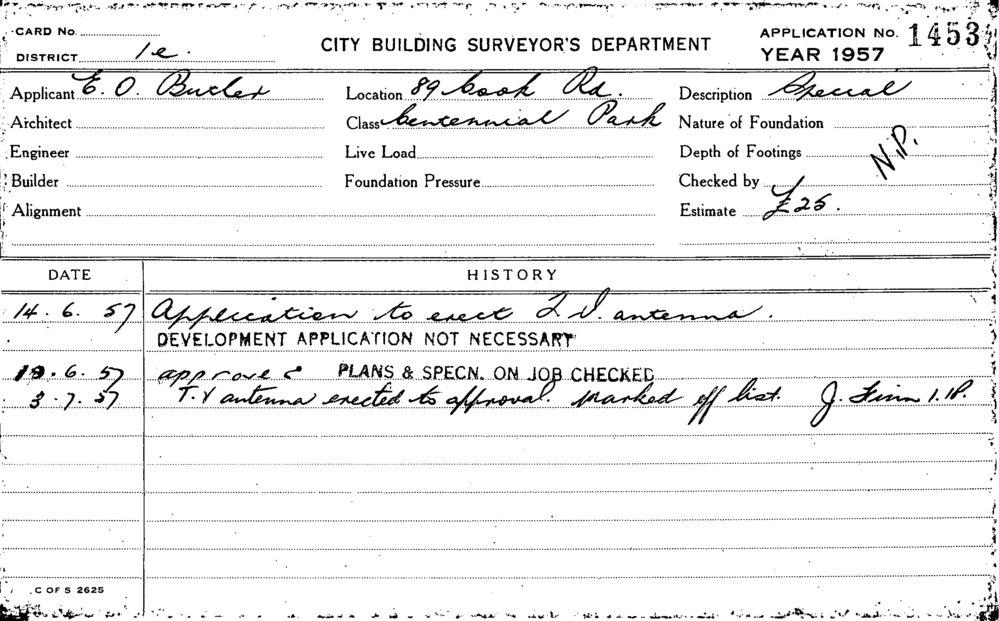 CARD No.
DISTRICT 1e.
CITY BUILDING SURVEYOR'S DEPARTMENT
APPLICATION No. 1453
YEAR 1957
Applicant E. O. Butler Location 89 Cook Rd. Description Special
Architect Class Centennial Park Nature of Foundation
Engineer Live Load Depth of Footings N.P.
Builder Foundation Pressure Checked by
Alignment Estimate £25.
DATE HISTORY
14. 6. 57 Application to erect T.V. antenna.
DEVELOPMENT APPLICATION NOT NECESSARY
19. 6. 57 approved PLANS & SPECN. ON JOB CHECKED
3. 7. 57 T.V antenna erected to approval. Marked off list. J. Finn
C OF S 2625